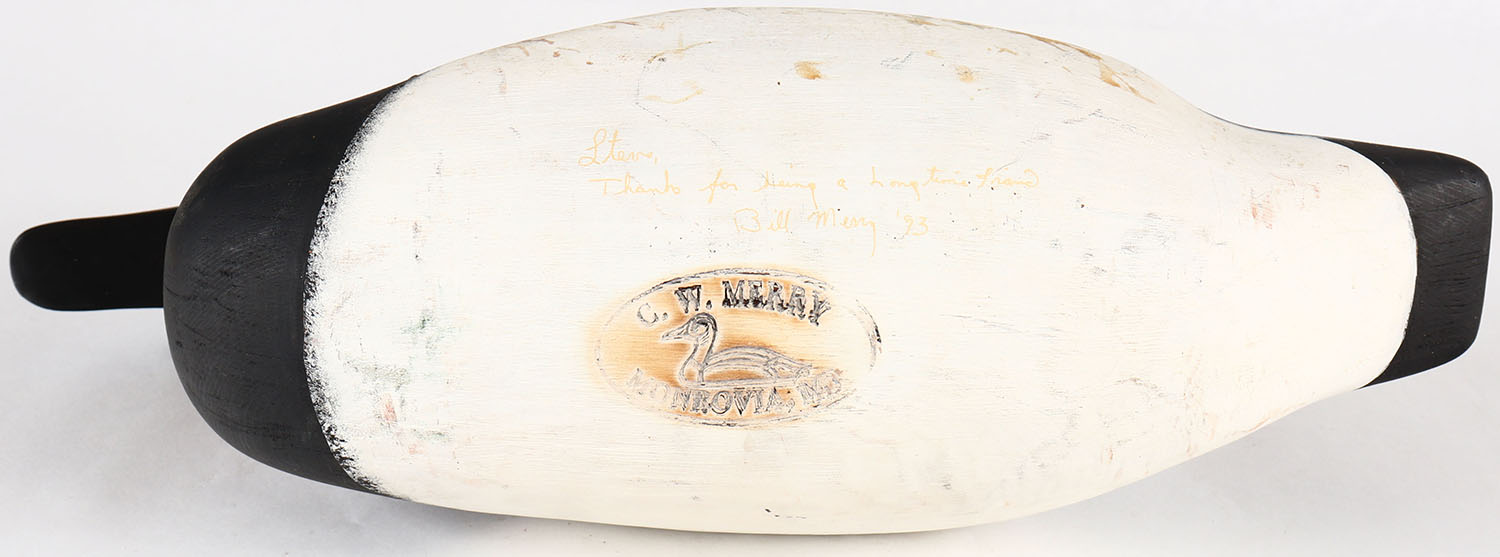 Steve,
Thanks for being a longtime friend
Bill Merry '93
C. W. MERRY
MONROVIA, MD